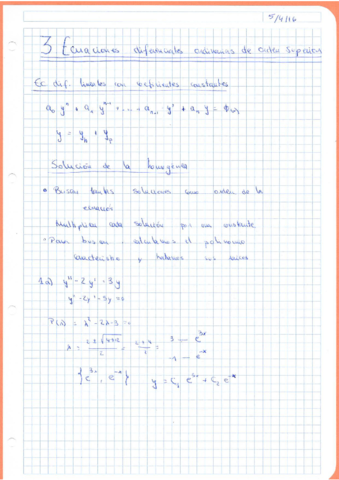 5/4/16
3. Ecuaciones diferenciales ordinarias de orden superior
Ec. dif. lineales con coeficientes constantes
a₀ yⁿ + a₁ yⁿ⁻¹ + ... + aₙ₋₁ y' + aₙ y =
y = yₕ + yₚ
Solución de la homogénea
• Buscar tantas soluciones como orden de la
ecuación
Multiplicar cada solución por una constante
• Para buscar calculamos el polinomio
característico y hallamos sus raíces
1.a) y'' - 2y' = 3y
y'' - 2y' - 3y = 0
P(λ) = λ² - 2λ - 3 = 0
λ = 2 ± √4+12 / 2 = 2 ± 4 / 2 = 3 — e³ˣ
-1 — e⁻ˣ
{e³ˣ, e⁻ˣ} y = C₁ e³ˣ + C₂ e⁻ˣ